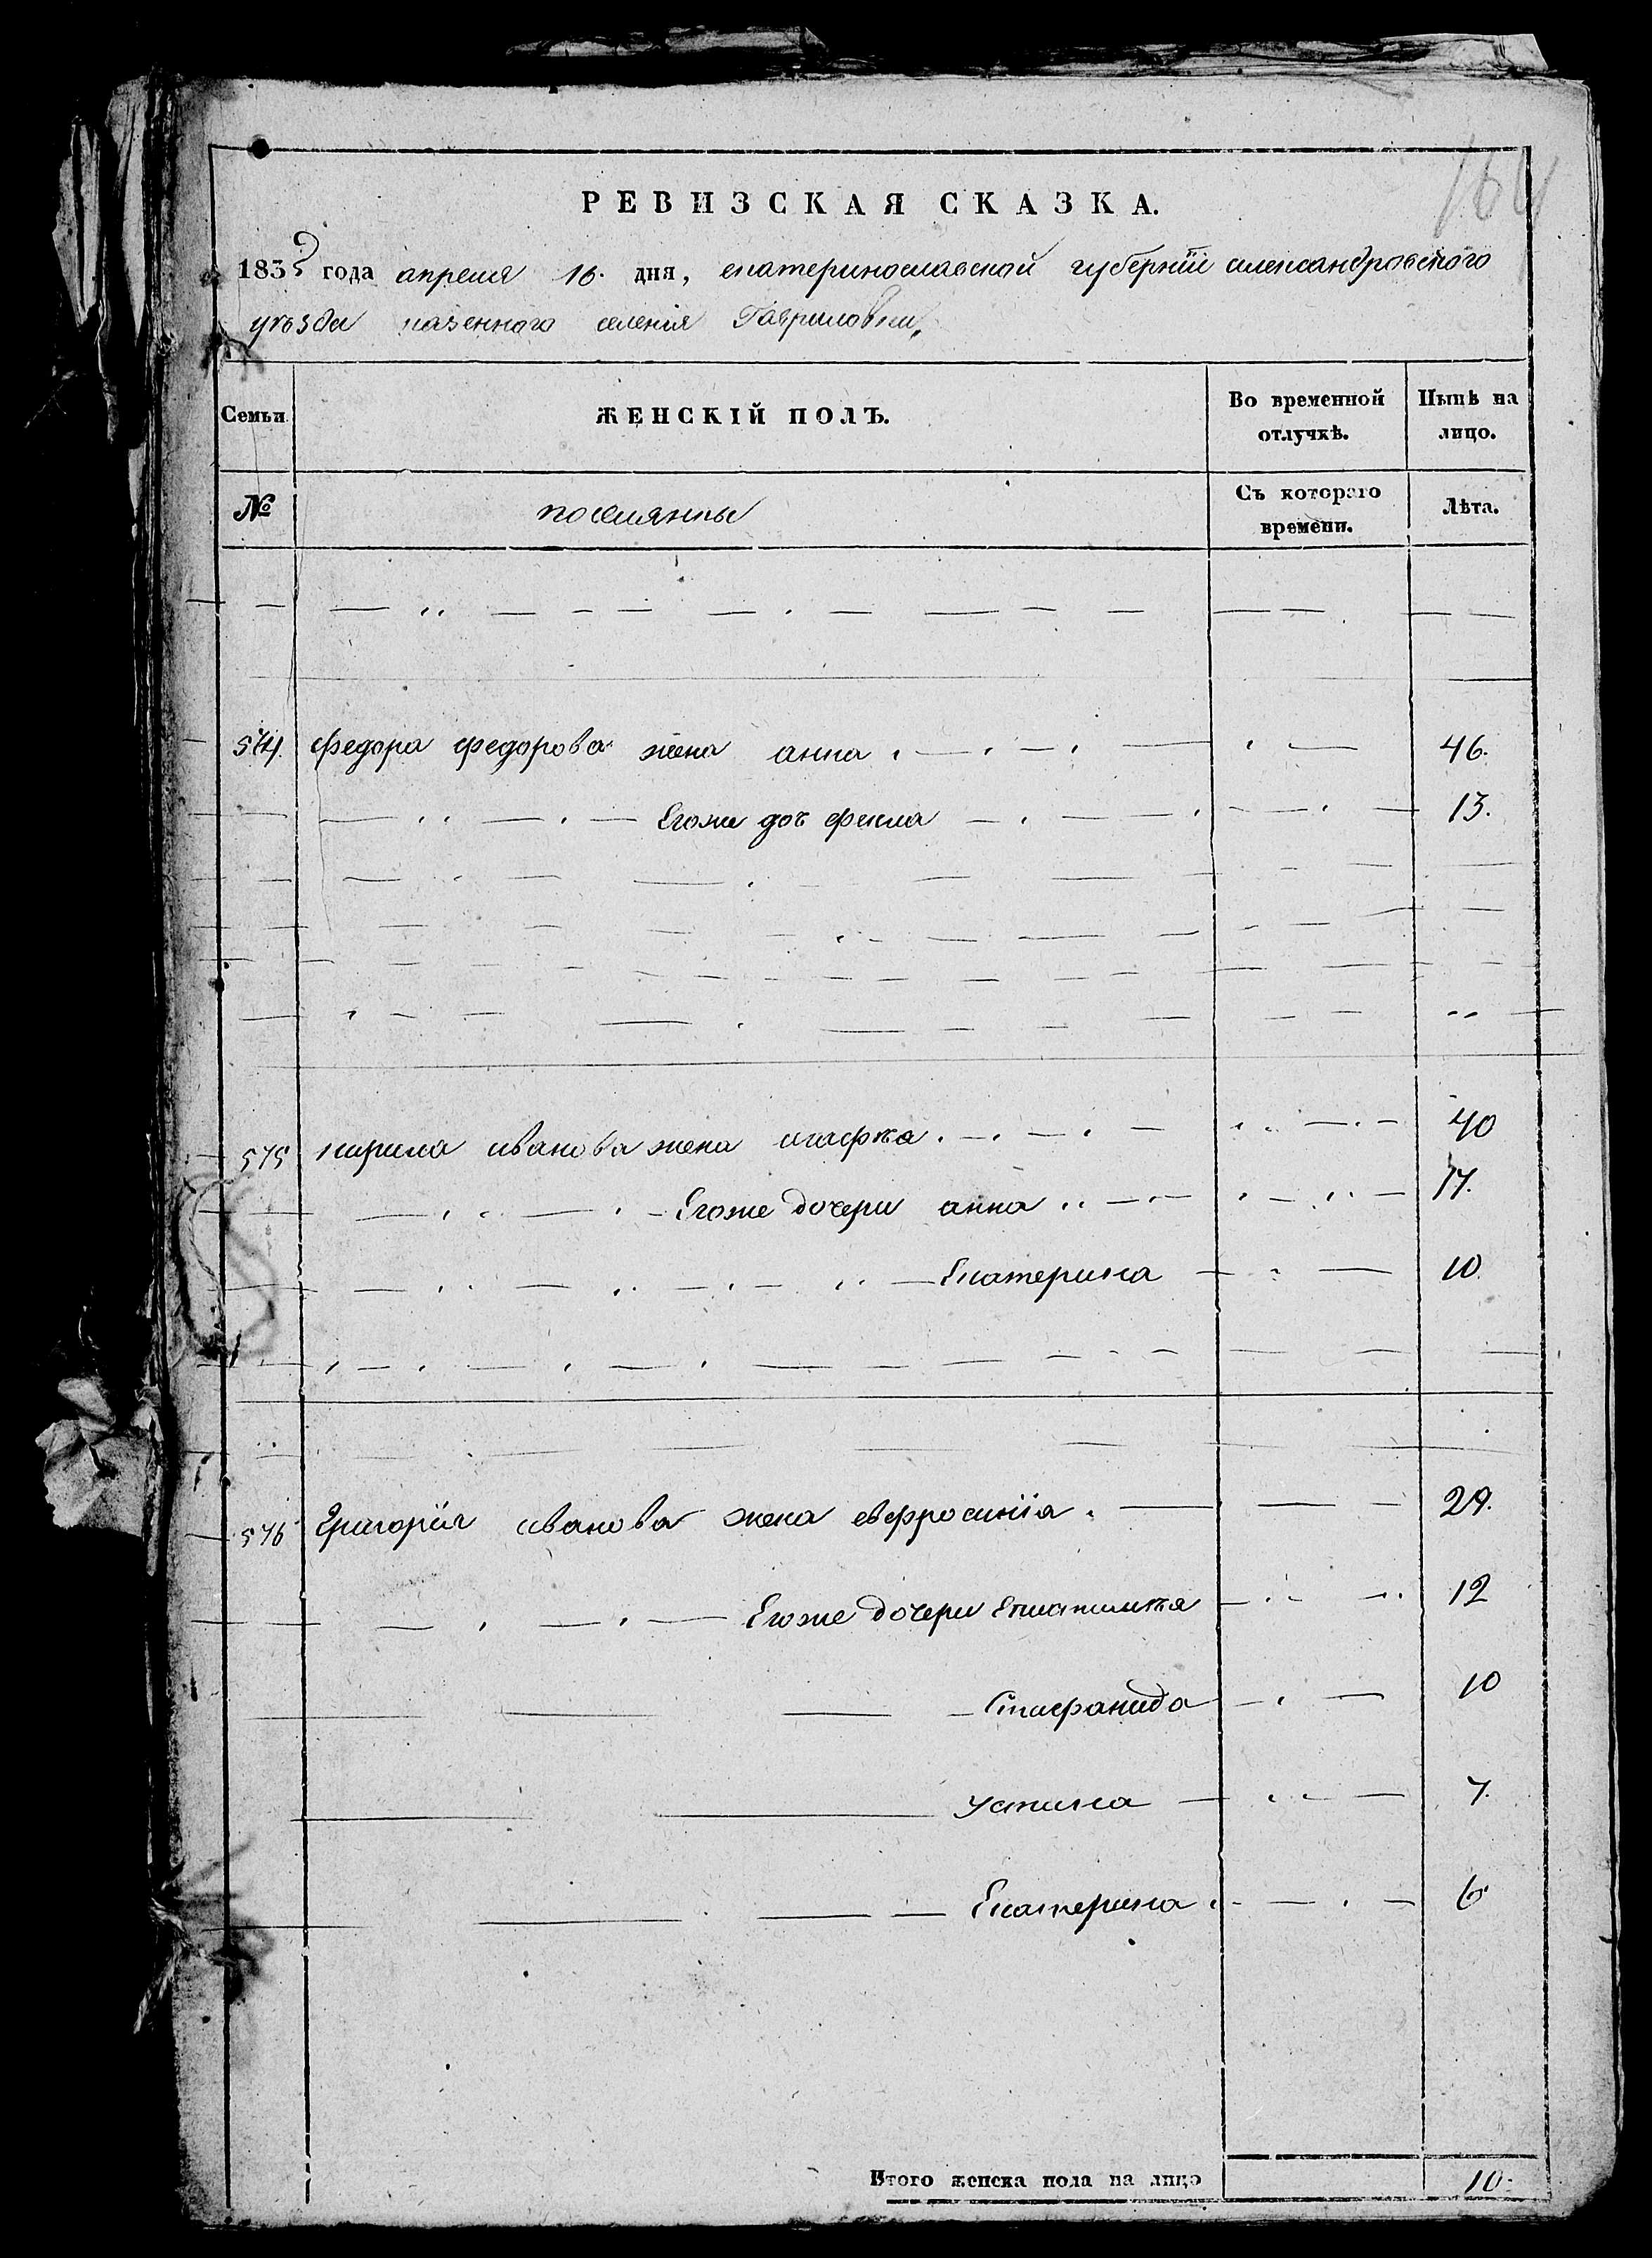 164
РЕВИЗСКАЯ СКАЗКА.
1835 года апреля 16. дня, екатеринославской губернїи александровского
уѣзда казенного селенія Гавриловки,
Семьи
ЖЕНСКІЙ ПОЛЪ.
Во временной отлучкѣ.
Нынѣ на лицо.
№
поселянки
Съ котораго времени.
Лѣта.
574. Федора федорова жена анна 46.
Егоже доч фекла 13.
575 кирила иванова жена агафия 40
Егоже дочери анна 17.
Екатерина 10.
576 Григорїя иванова жена евфросинія 29.
Егоже дочери 12
Стефанида 10
устина 7.
Екатерина 6
Итого женска пола на лицо 10.